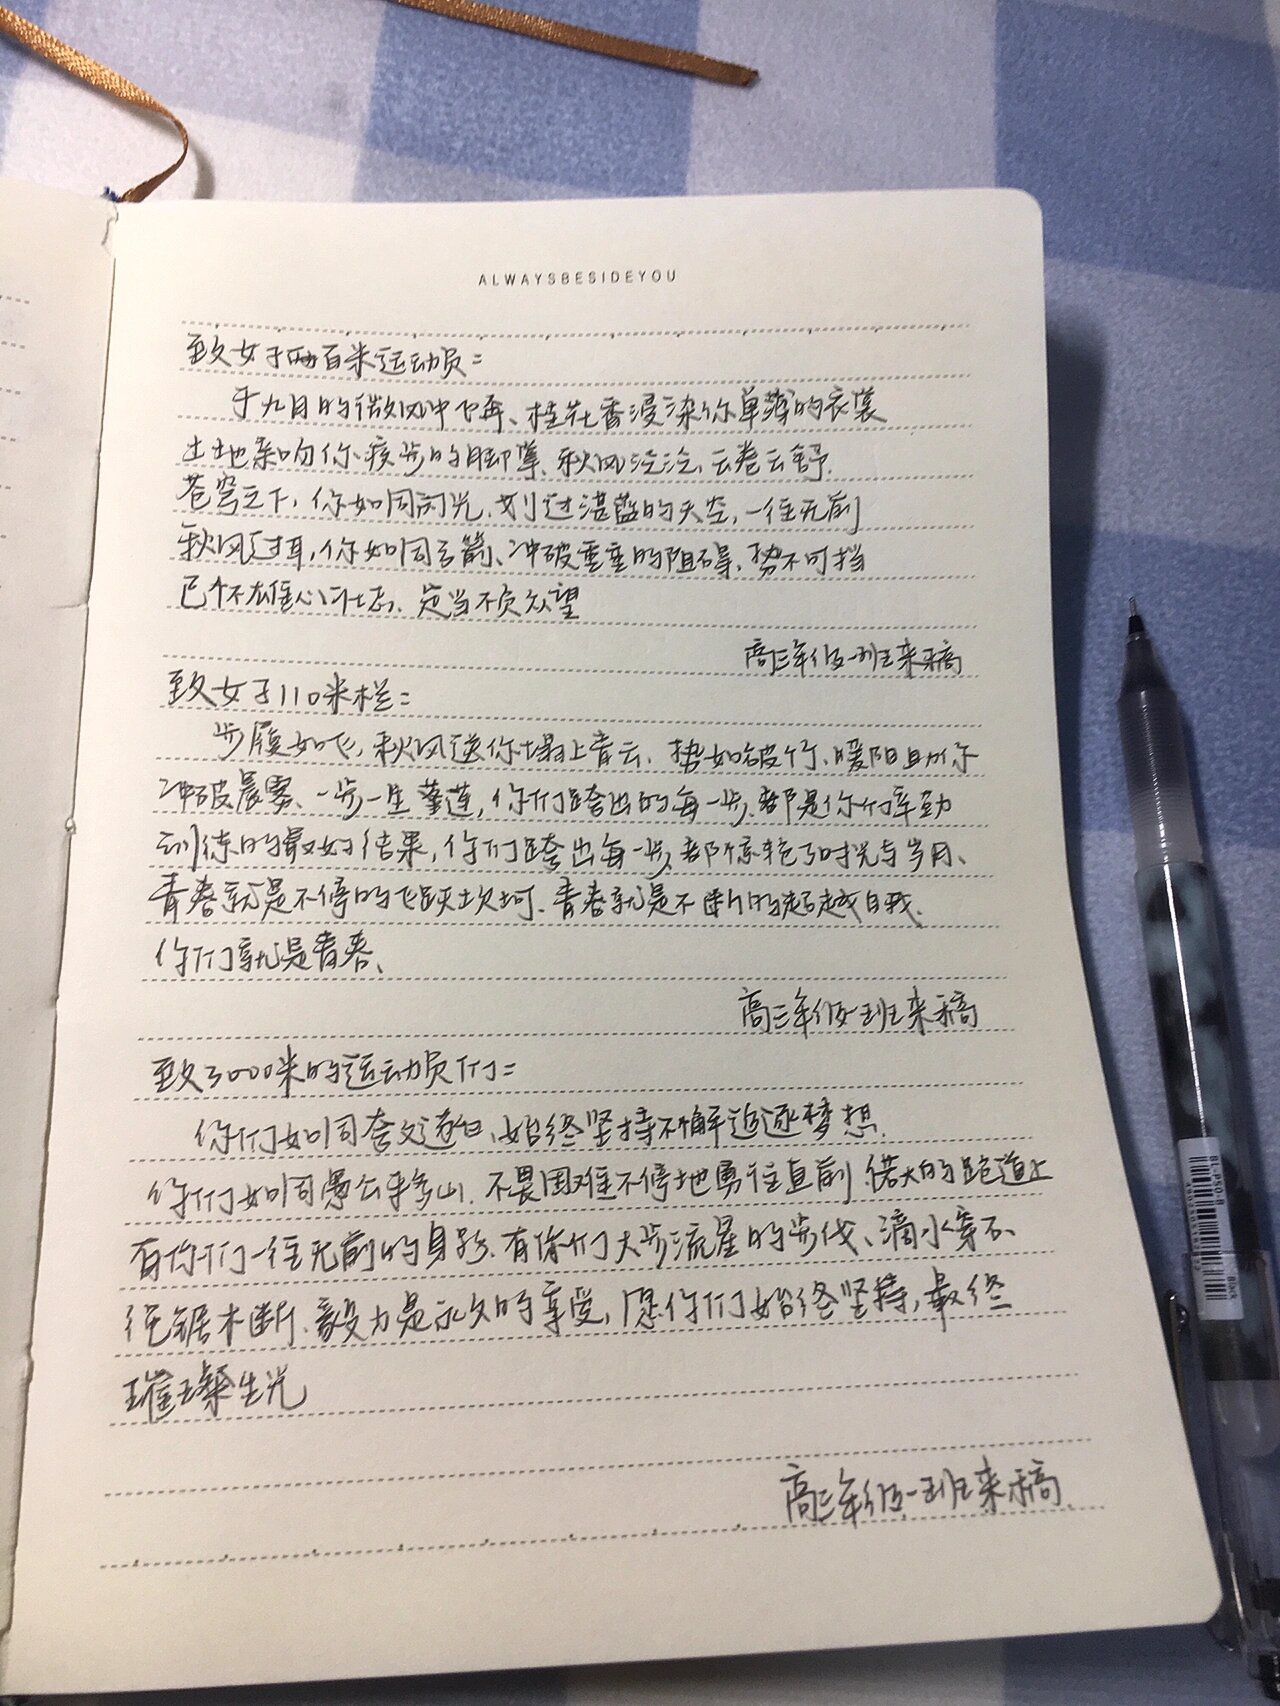 ALWAYSBESIDEYOU
致女子两百米运动员:
于九月的微风中飞奔、桂花香浸染你单薄的衣裳
土地亲吻你疾步的脚掌、秋风泛泛、云卷云舒.
苍穹之下, 你如同闪光, 划过湛蓝的天空, 一往无前
秋风过耳, 你如同弓箭、冲破重重的阻碍, 势不可挡
已怀雄心壮志、定当不负众望
高三年级一班来稿
致女子110米栏:
步履如飞, 秋风送你塌上青云、势如破竹、暖阳助你
冲破晨雾、一步一生莲, 你们跨出的每一步、都是你们辛勤
训练的最好结果, 你们跨出每一步, 都惊艳了时光与岁月、
青春就是不停的飞跃坎坷、青春就是不断的超越自我、
你们就是青春、
高三年级一班来稿
致3000米的运动员们:
你们如同夸父逐日、始终坚持不懈追逐梦想.
你们如同愚公移山、不畏困难不停地勇往直前 偌大的跑道上
有你们一往无前的身影、有你们大步流星的步伐、滴水穿石、
绳锯木断、毅力是永久的享受, 愿你们始终坚持, 最终
璀璨生光
高三年级一班来稿
BL-P50-B
Black